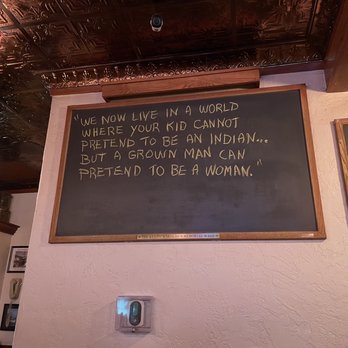 "WE NOW LIVE IN A WORLD
WHERE YOUR KID CANNOT
PRETEND TO BE AN INDIAN...
BUT A GROWN MAN CAN
PRETEND TO BE A WOMAN."